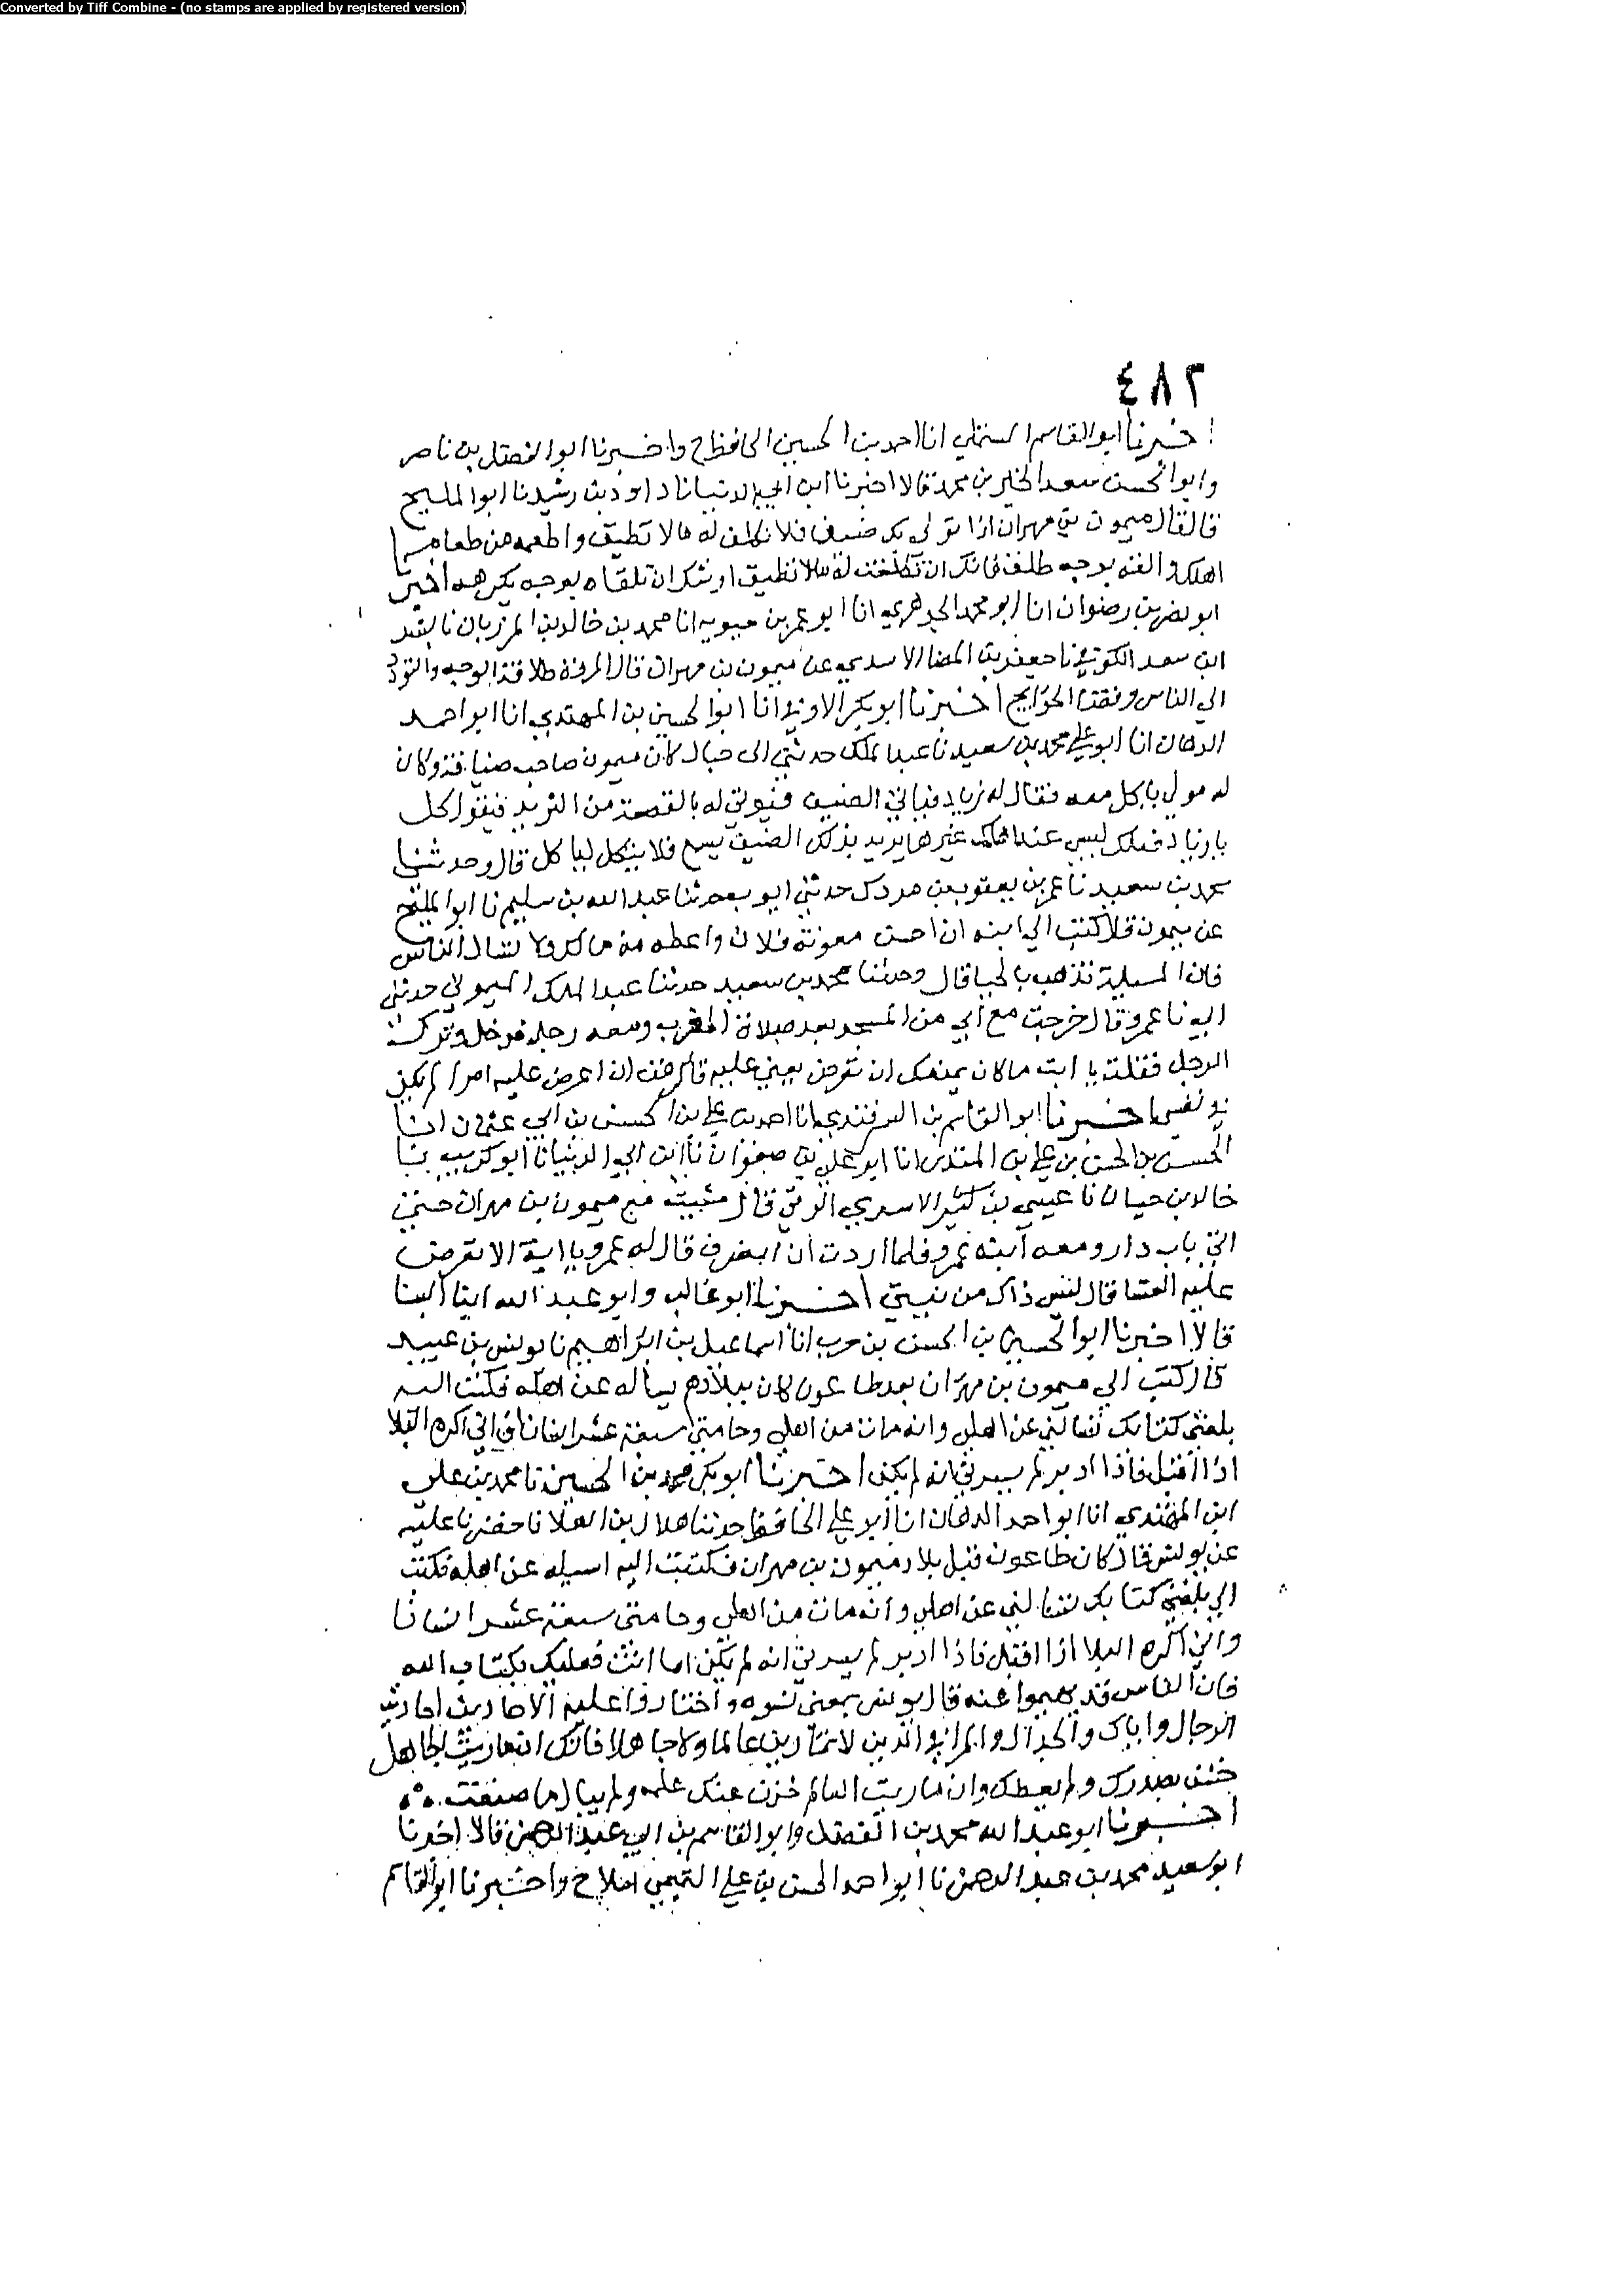 Converted by Tiff Combine - (no stamps are applied by registered version)
٤٨٢
اخبرنا ابو القاسم المستملي انا احمد بن الحسين الحافظ ح واخبرنا ابو الفضل بن ناصر
وابو الحسن سعد الخير بن محمد قالا اخبرنا ابن ابي الدنيا نا داود بن رشيد نا ابو المليح
قال قال ميمون بن مهران اذا نزل بك ضيف فلا تكلف له مالا تطيق واطعمه من طعام
اهلك والقه بوجه طلق فانك ان تكلفت له مالا تطيق اوشك ان تلقاه بوجه يكرهه اخبرنا
ابو نصر بن رضوان انا ابو محمد الجوهري انا ابو عمر بن حيويه انا محمد بن خالد بن المرزبان نا
ابن سعد الكوفي نا جعفر بن الاسدي عن ميمون بن مهران قال المروة طلاقة الوجه والتودد
الى الناس وقضا الحوايج اخبرنا ابو بكر انا ابو الحسين بن المهتدي انا ابو احمد
الدهان انا ابو علي محمد بن سعيد نا عبد الملك حدثني ابي قال كان ميمون صاحب ضيافة وكان
له مولى ياكل معه فقال له زياد فياتي الضيف فيوتى له بالقصعة من الثريد فيقول كل
يا زياد فلك ليس عند اهلك غيرها يريد بذلك الضيف يسمع فلا يتكل لياكل قال وحدثنا
محمد بن سعيد نا عمر بن يعقوب بن مردك حدثني ايوب حدثنا عبد الله بن سليم نا ابو المليح
عن ميمون قال كتب الي ابنه ان احسن معونة فلان واعطه من مالك ولا تسال الناس
فان المسيلة تذهب بالحيا قال وحدثنا محمد بن سعيد حدثنا عبد الملك الميموني حدثني
ابي نا عمرو قال خرجت مع ابي من المسجد بعد صلاة المغرب ومعه رجل فدخل وترك
الرجل فقلت يا ابت ما كان يمنعك ان تعرض يعني عليه قال كرهت ان اعرض عليه امرا لم يكن
في نفسي اخبرنا ابو القاسم بن السمرقندي انا احمد بن علي بن الحسن بن ابي عثمان انا
الحسن بن الحسن بن علي بن المنذر انا ابو علي بن صفوان نا ابن ابي الدنيا نا ابو كريب نا
خالد بن حيان نا عيسى بن كثير الاسدي الرقي قال مشيت مع ميمون بن مهران حتى
اتى باب داره ومعه ابنه عمرو فلما اردت ان انصرف قال له عمرو يا ابة الا تعرض
عليه العشا قال ليس ذاك من نيتي اخبرنا ابو غالب وابو عبد الله ابنا البنا
قالا اخبرنا ابو الحسين بن الحسن بن حرب انا اسماعيل بن ابراهيم نا يونس بن عبيد
قال كتب الى ميمون بن مهران بعد طاعون كان ببلادهم يساله عن اهله فكتب اليه
بلغني كتابك تسالني عن اهلي وانه مات من اهلي وحامتي سبعة عشر انسانا واني اكره البلا
اذا اقبل فاذا ادبر لم يسرني انه لم يكن اخبرنا ابو بكر محمد بن الحسين نا محمد بن علي
ابن المهتدي انا ابو احمد الدهان انا ابو علي الحافظ حدثنا هلال بن العلا نا حفص نا علية
عن يونس قال كان طاعون قبل بلاد ميمون بن مهران فكتبت اليه اسيله عن اهله فكتب
الي بلغني كتابك تسالني عن اهلي وانه مات من اهلي وحامتي سبعة عشر انسانا
واني اكره البلا اذا اقبل فاذا ادبر لم يسرني انه لم يكن اما انت فعليك بكتاب الله
فان الناس قد عنه قال يونس يعني نسوه واختاروا عليه الاحاديث احاديث
الرجال واياك والجدال والمرا في الدين لا تمارين عالما ولا جاهلا فانك ان ماريت الجاهل
خشن بصدرك ولم يعطك وان ماريت العالم خزن عنك علمه ولم يبال ما صنعت
اخبرنا ابو عبد الله محمد بن الفضل وابو القاسم بن ابي عبد الرحمن قالا اخبرنا
ابو سعيد محمد بن عبد الرحمن نا ابو احمد الحسن بن علي التميمي املا ح واخبرنا ابو القاسم